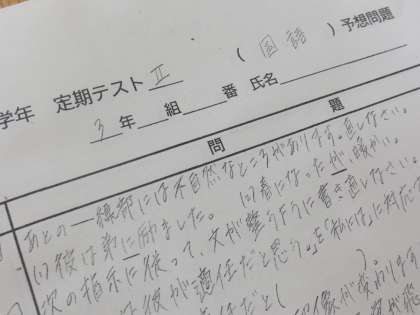 学年 定期テスト Ⅱ ( 国語 ) 予想問題
3 年 組 番 氏名
問 題
あとの――線部には不自然なところがあります。直しなさい。
(1) 彼は弟に励ました。 (2) 春になったが、暖かい。
次の指示に従って、文が整うように書き直しなさい。
は彼が適任だと思う。」を「私には」に対応
任だと( )。